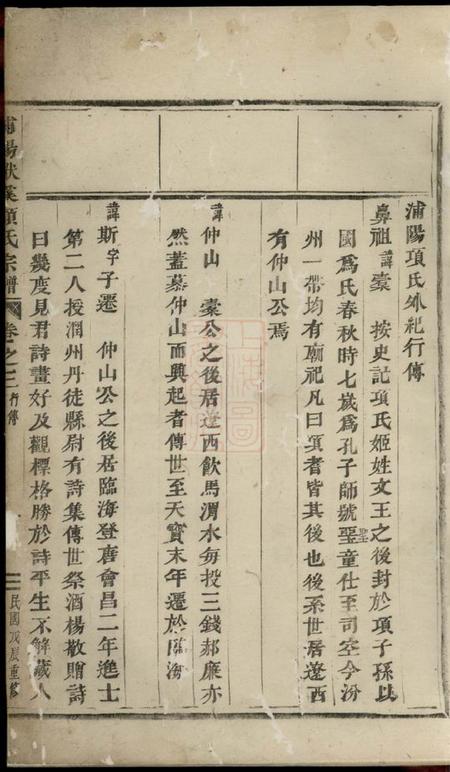 浦陽項氏外祀行傳
鼻祖諱橐　按史記項氏姬姓文王之後封於項子孫以
國為氏春秋時七歲爲孔子師號聖童仕至司空今汾
州一帶均有廟祀凡曰項者皆其後也後系世居遼西
有仲山公焉
諱仲山　橐公之後居遼西飲馬渭水每投三錢郝廉亦
然蓋慕仲山而興起者傳世至天寶末年遷於臨海
諱斯字子遷　仲山公之後居臨海登唐會昌二年進士
第二人授潤州丹徒縣尉有詩集傳世祭酒楊敬贈詩
曰幾度見君詩畫好及觀標格勝於詩平生不解藏人
浦陽秋溪項氏宗譜　卷之三　行傳　民國戊辰重修
上海圖